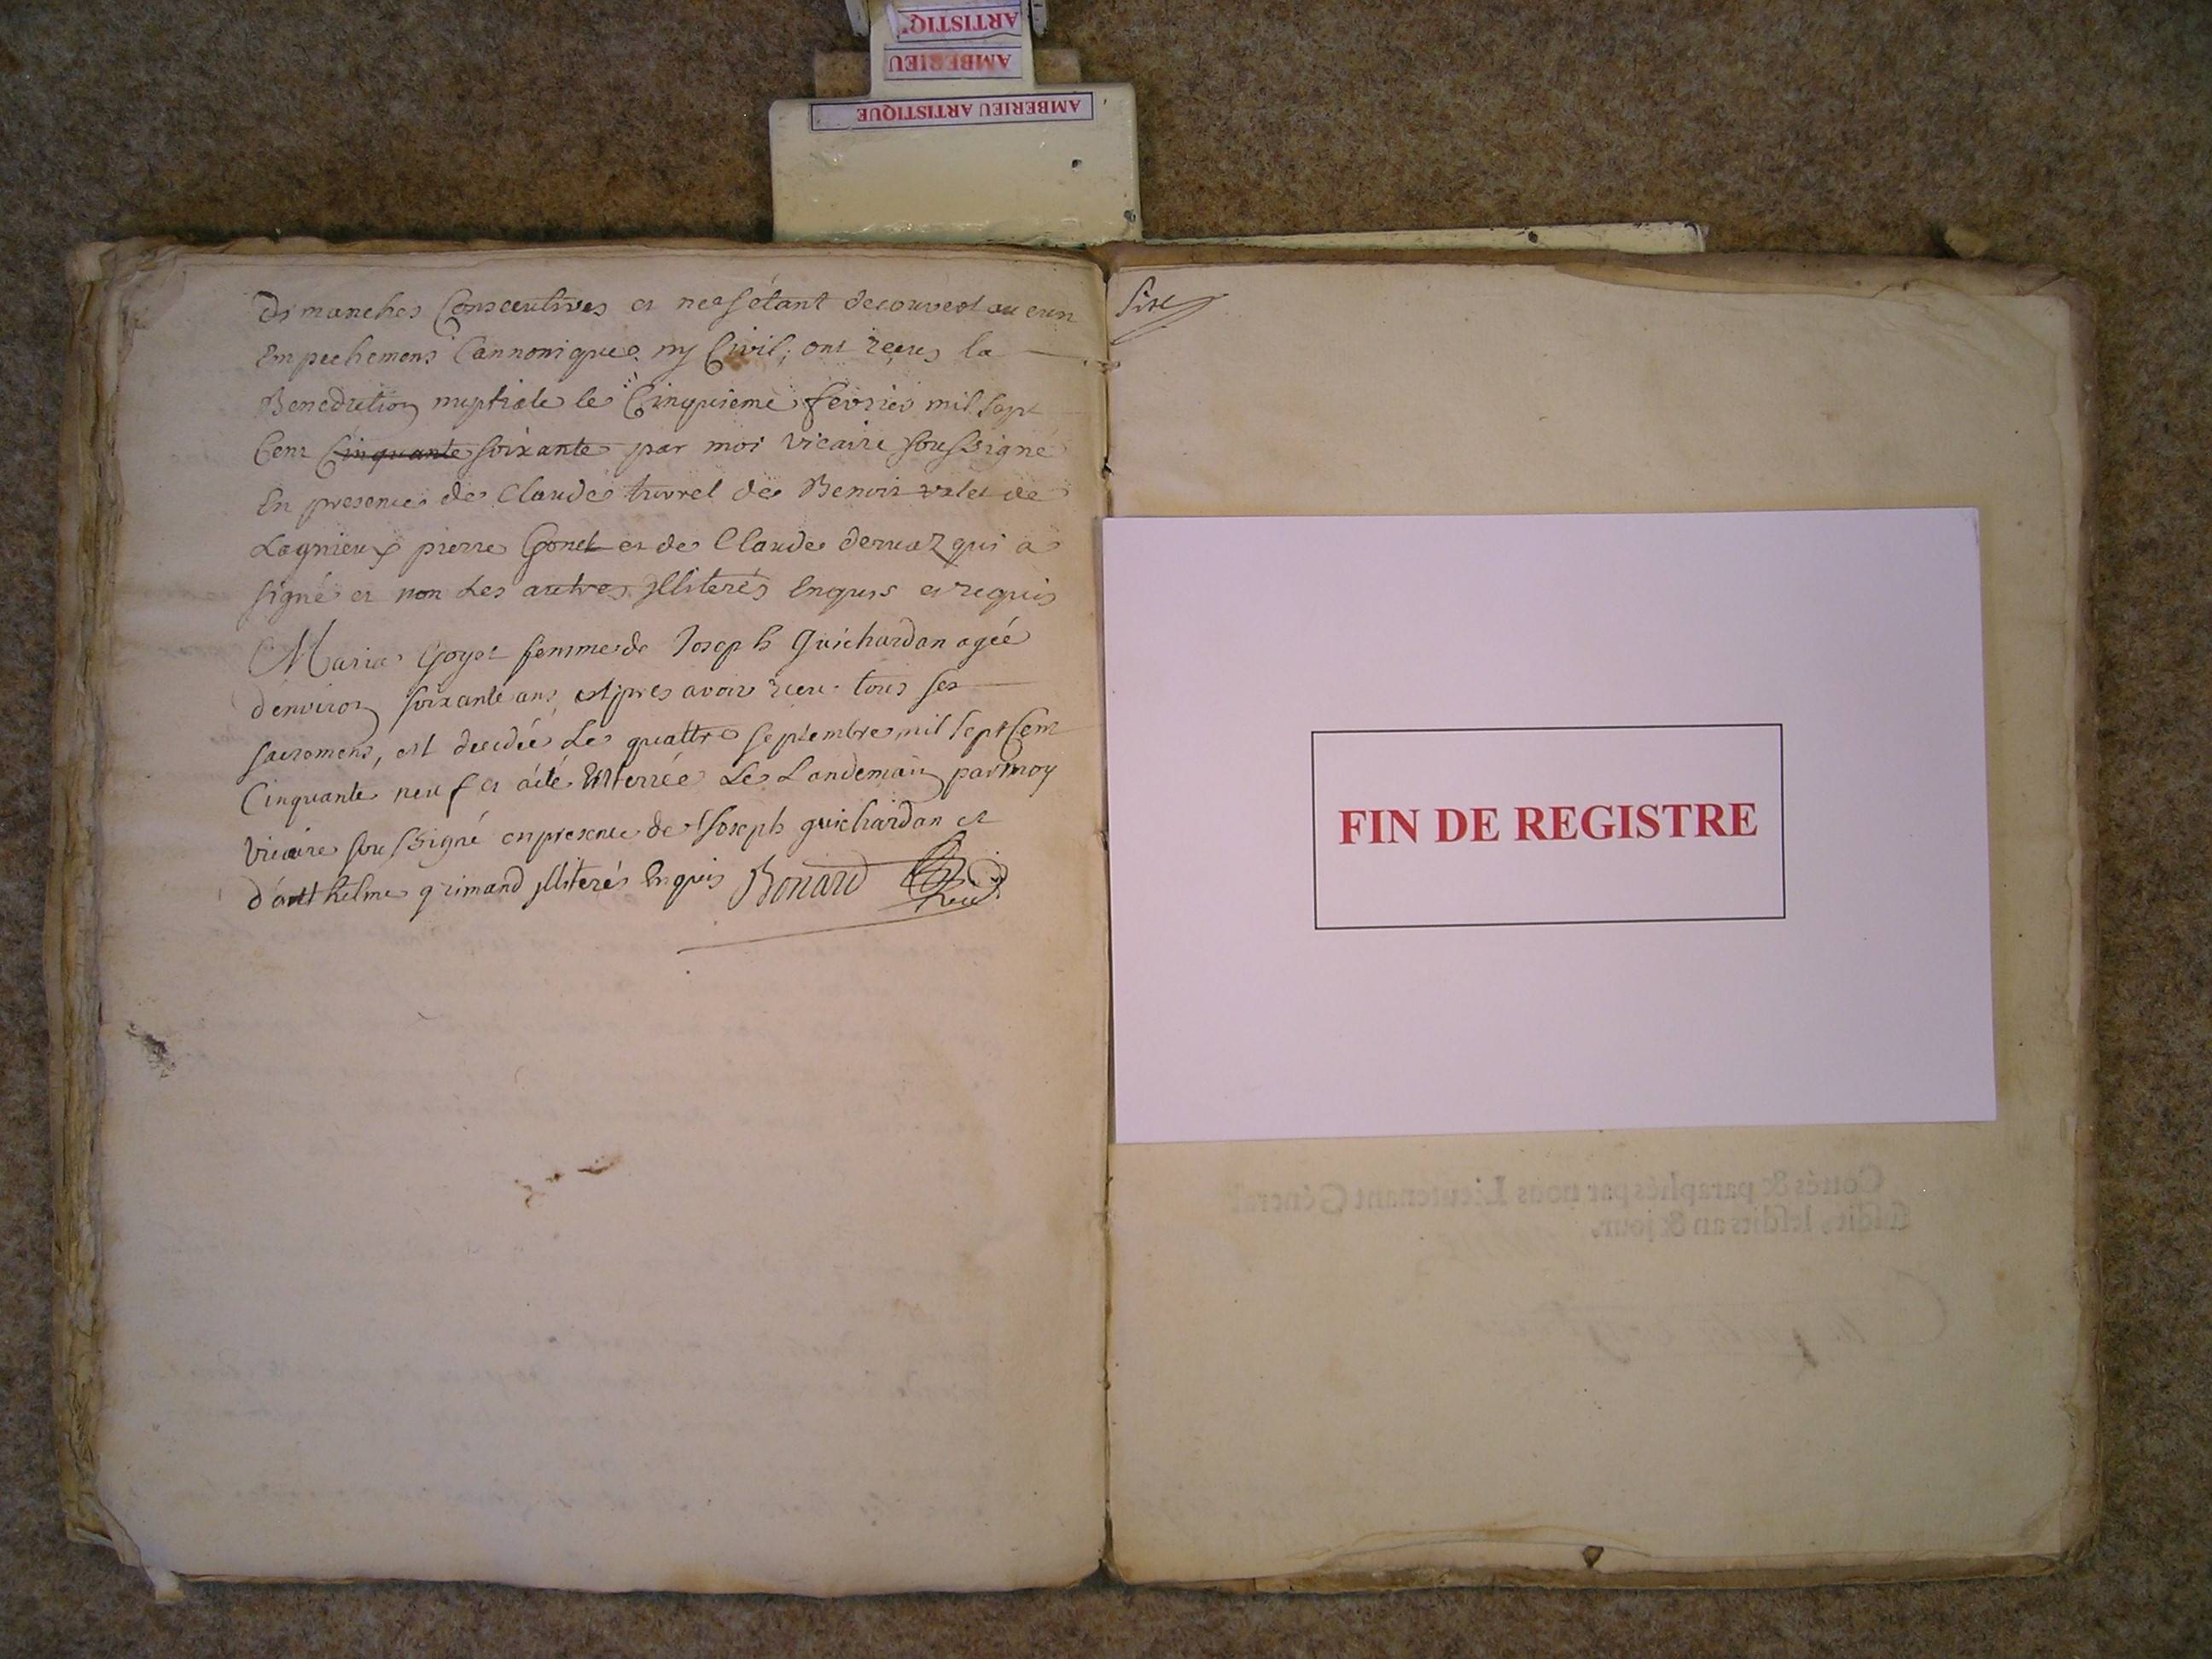 ARTISTIQ'
AMBERIEU
AMBERIEU ARTISTIQUE
Dimanches Consecutives et ne sétant decouvert aucun
Empechement Cannonique ny Civil, ont reçus la
Benediction nuptiale le Cinquieme fevrier mil sept
Cent Cinquante soixante par moi vicaire soussigné
En presence de Claude de Benoit valet de
Lagnieux pierre Gonet et de Claude dervaz qui a
signé et non Les autres illiterés Enquis et requis
Marie Goyet femme de Joseph Guichardan agée
d'environ soixante ans, apres avoir recu tous ses
sacremens, est decedée Le quattre septembre mil sept Cent
Cinquante neuf et a été Enterrée Le Landemain par moy
vicaire soussigné en presence de Joseph guichardan et
d'anthelme grimand illiterés Enquis Bonard
FIN DE REGISTRE
Cottés & paraphés par nous Lieutenant Général
susdit, lesdits an & jour.